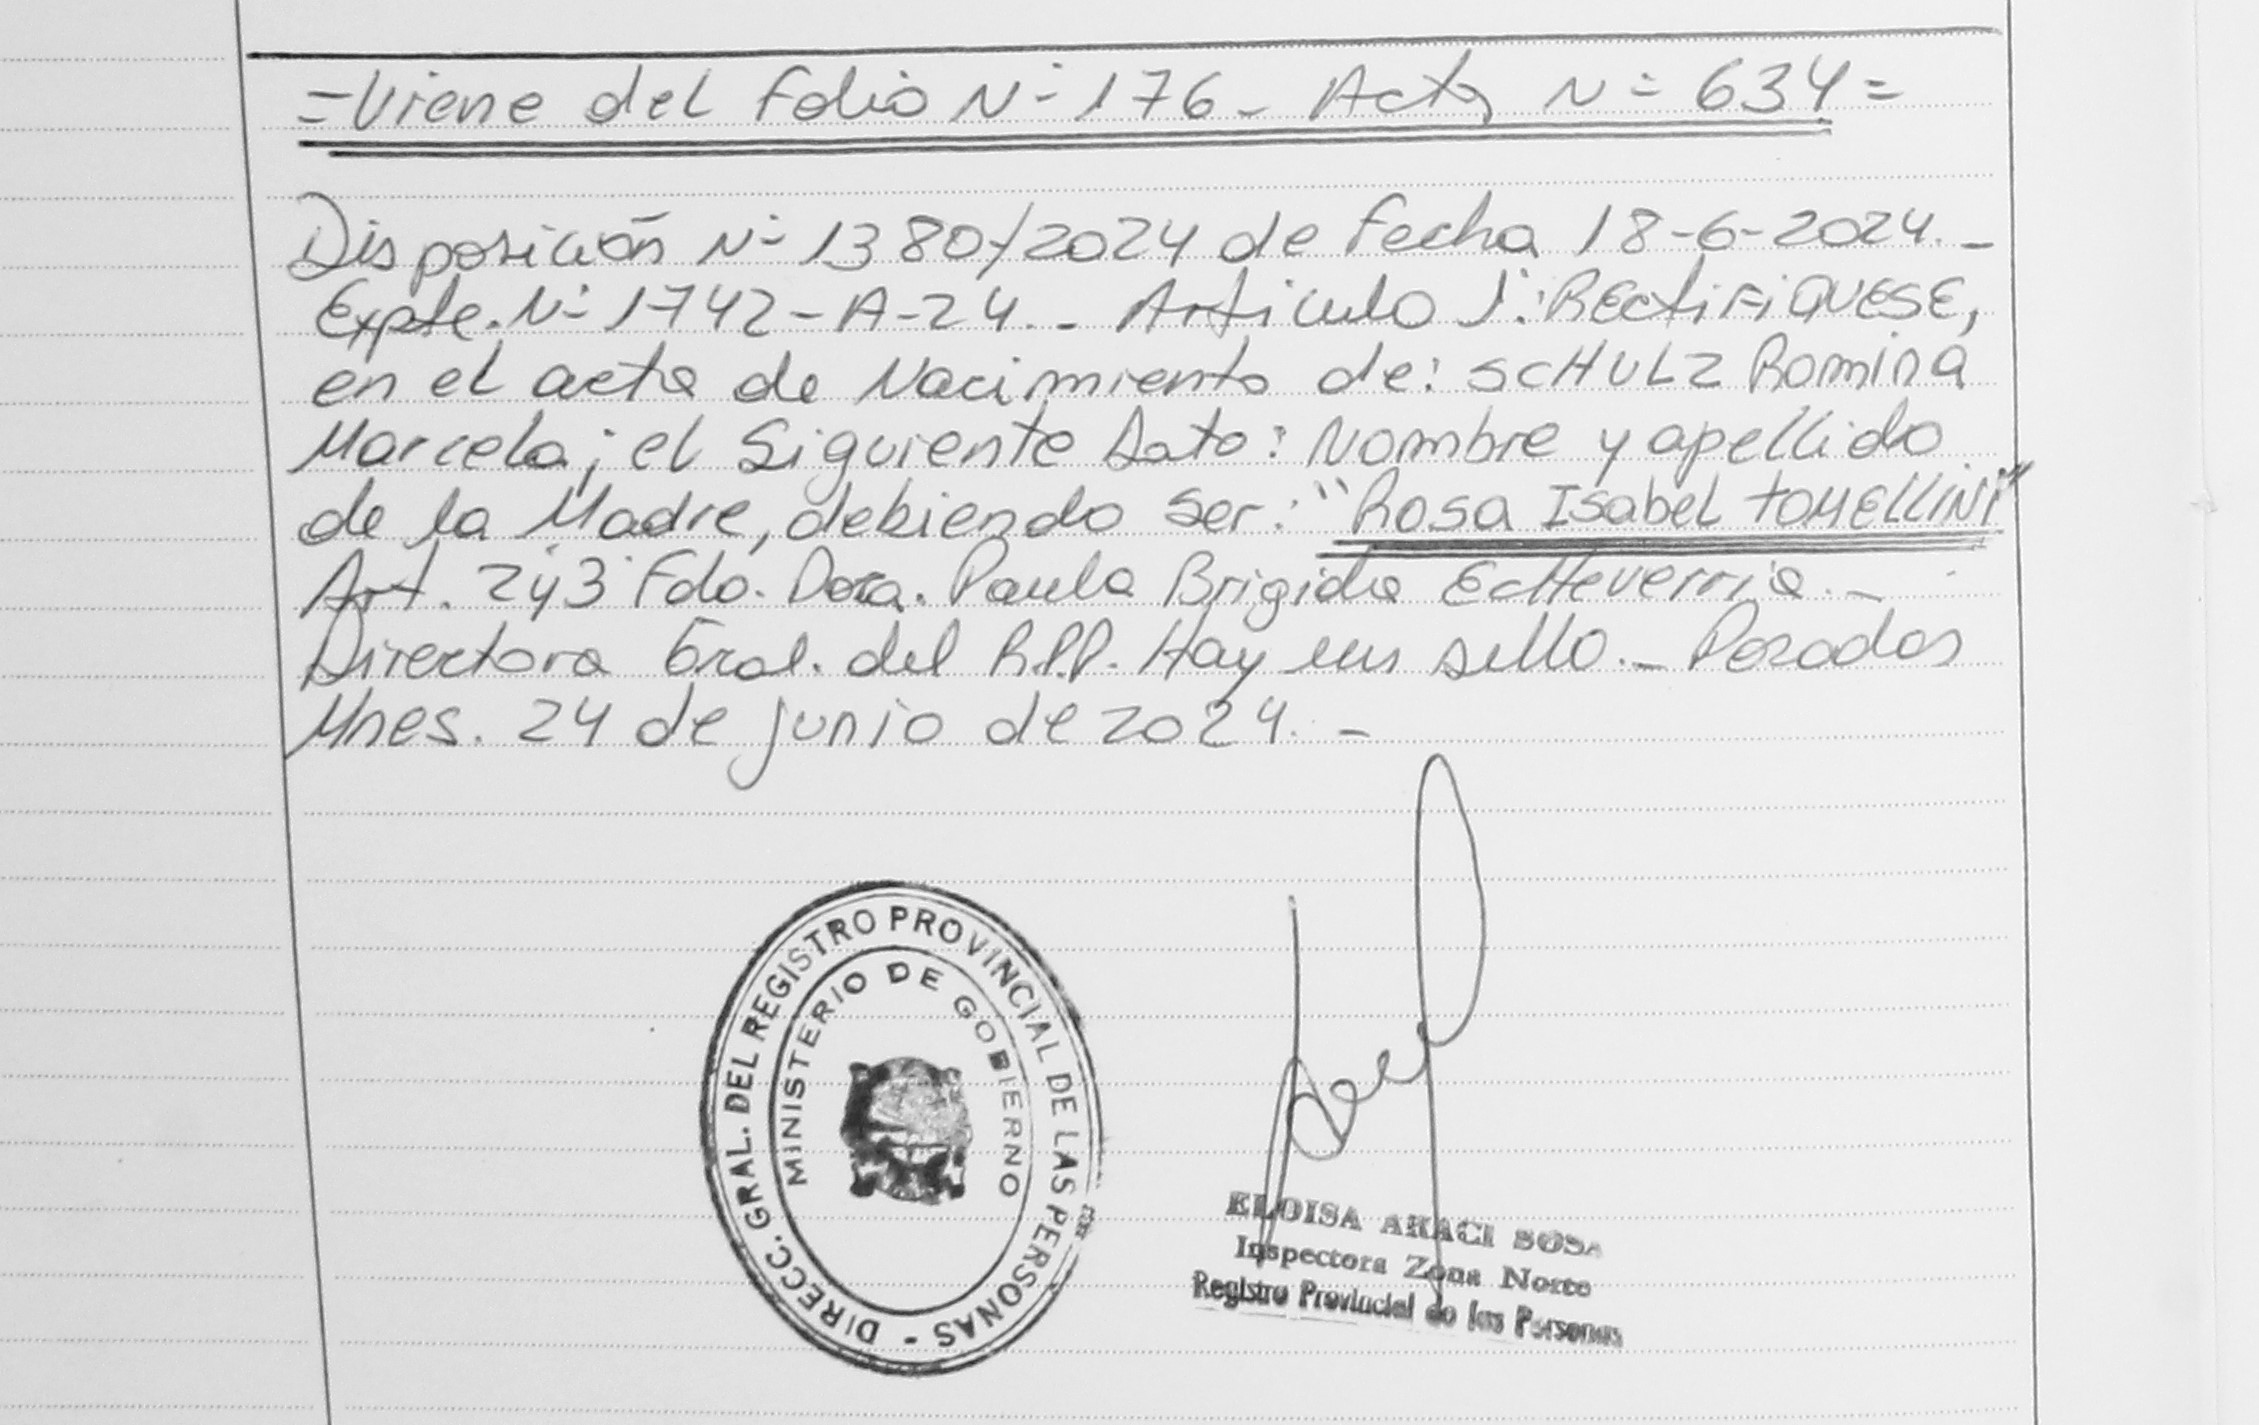 =Viene del folio N= 176- Acta N= 634=
Disposición N= 1380/2024 de fecha 18-6-2024.-
Expte. N= 1742-A-24.- Artículo 1°: RECTIFIQUESE,
en el acta de Nacimiento de: SCHULZ Romina
Marcela; el Siguiente dato: Nombre y apellido
de la Madre, debiendo ser: "Rosa Isabel TOMELLINI"
Art. 2y3 Fdo. Dora. Paula Brigida Echeverria.-
Directora Gral. del R.P.P. Hay un sello.- Posadas
Mnes. 24 de junio de 2024.-
DIRECC. GRAL. DEL REGISTRO PROVINCIAL DE LAS PERSONAS -
MINISTERIO DE GOBIERNO
ELOISA ARACI SOSA
Inspectora Zona Norte
Registro Provincial de las Personas